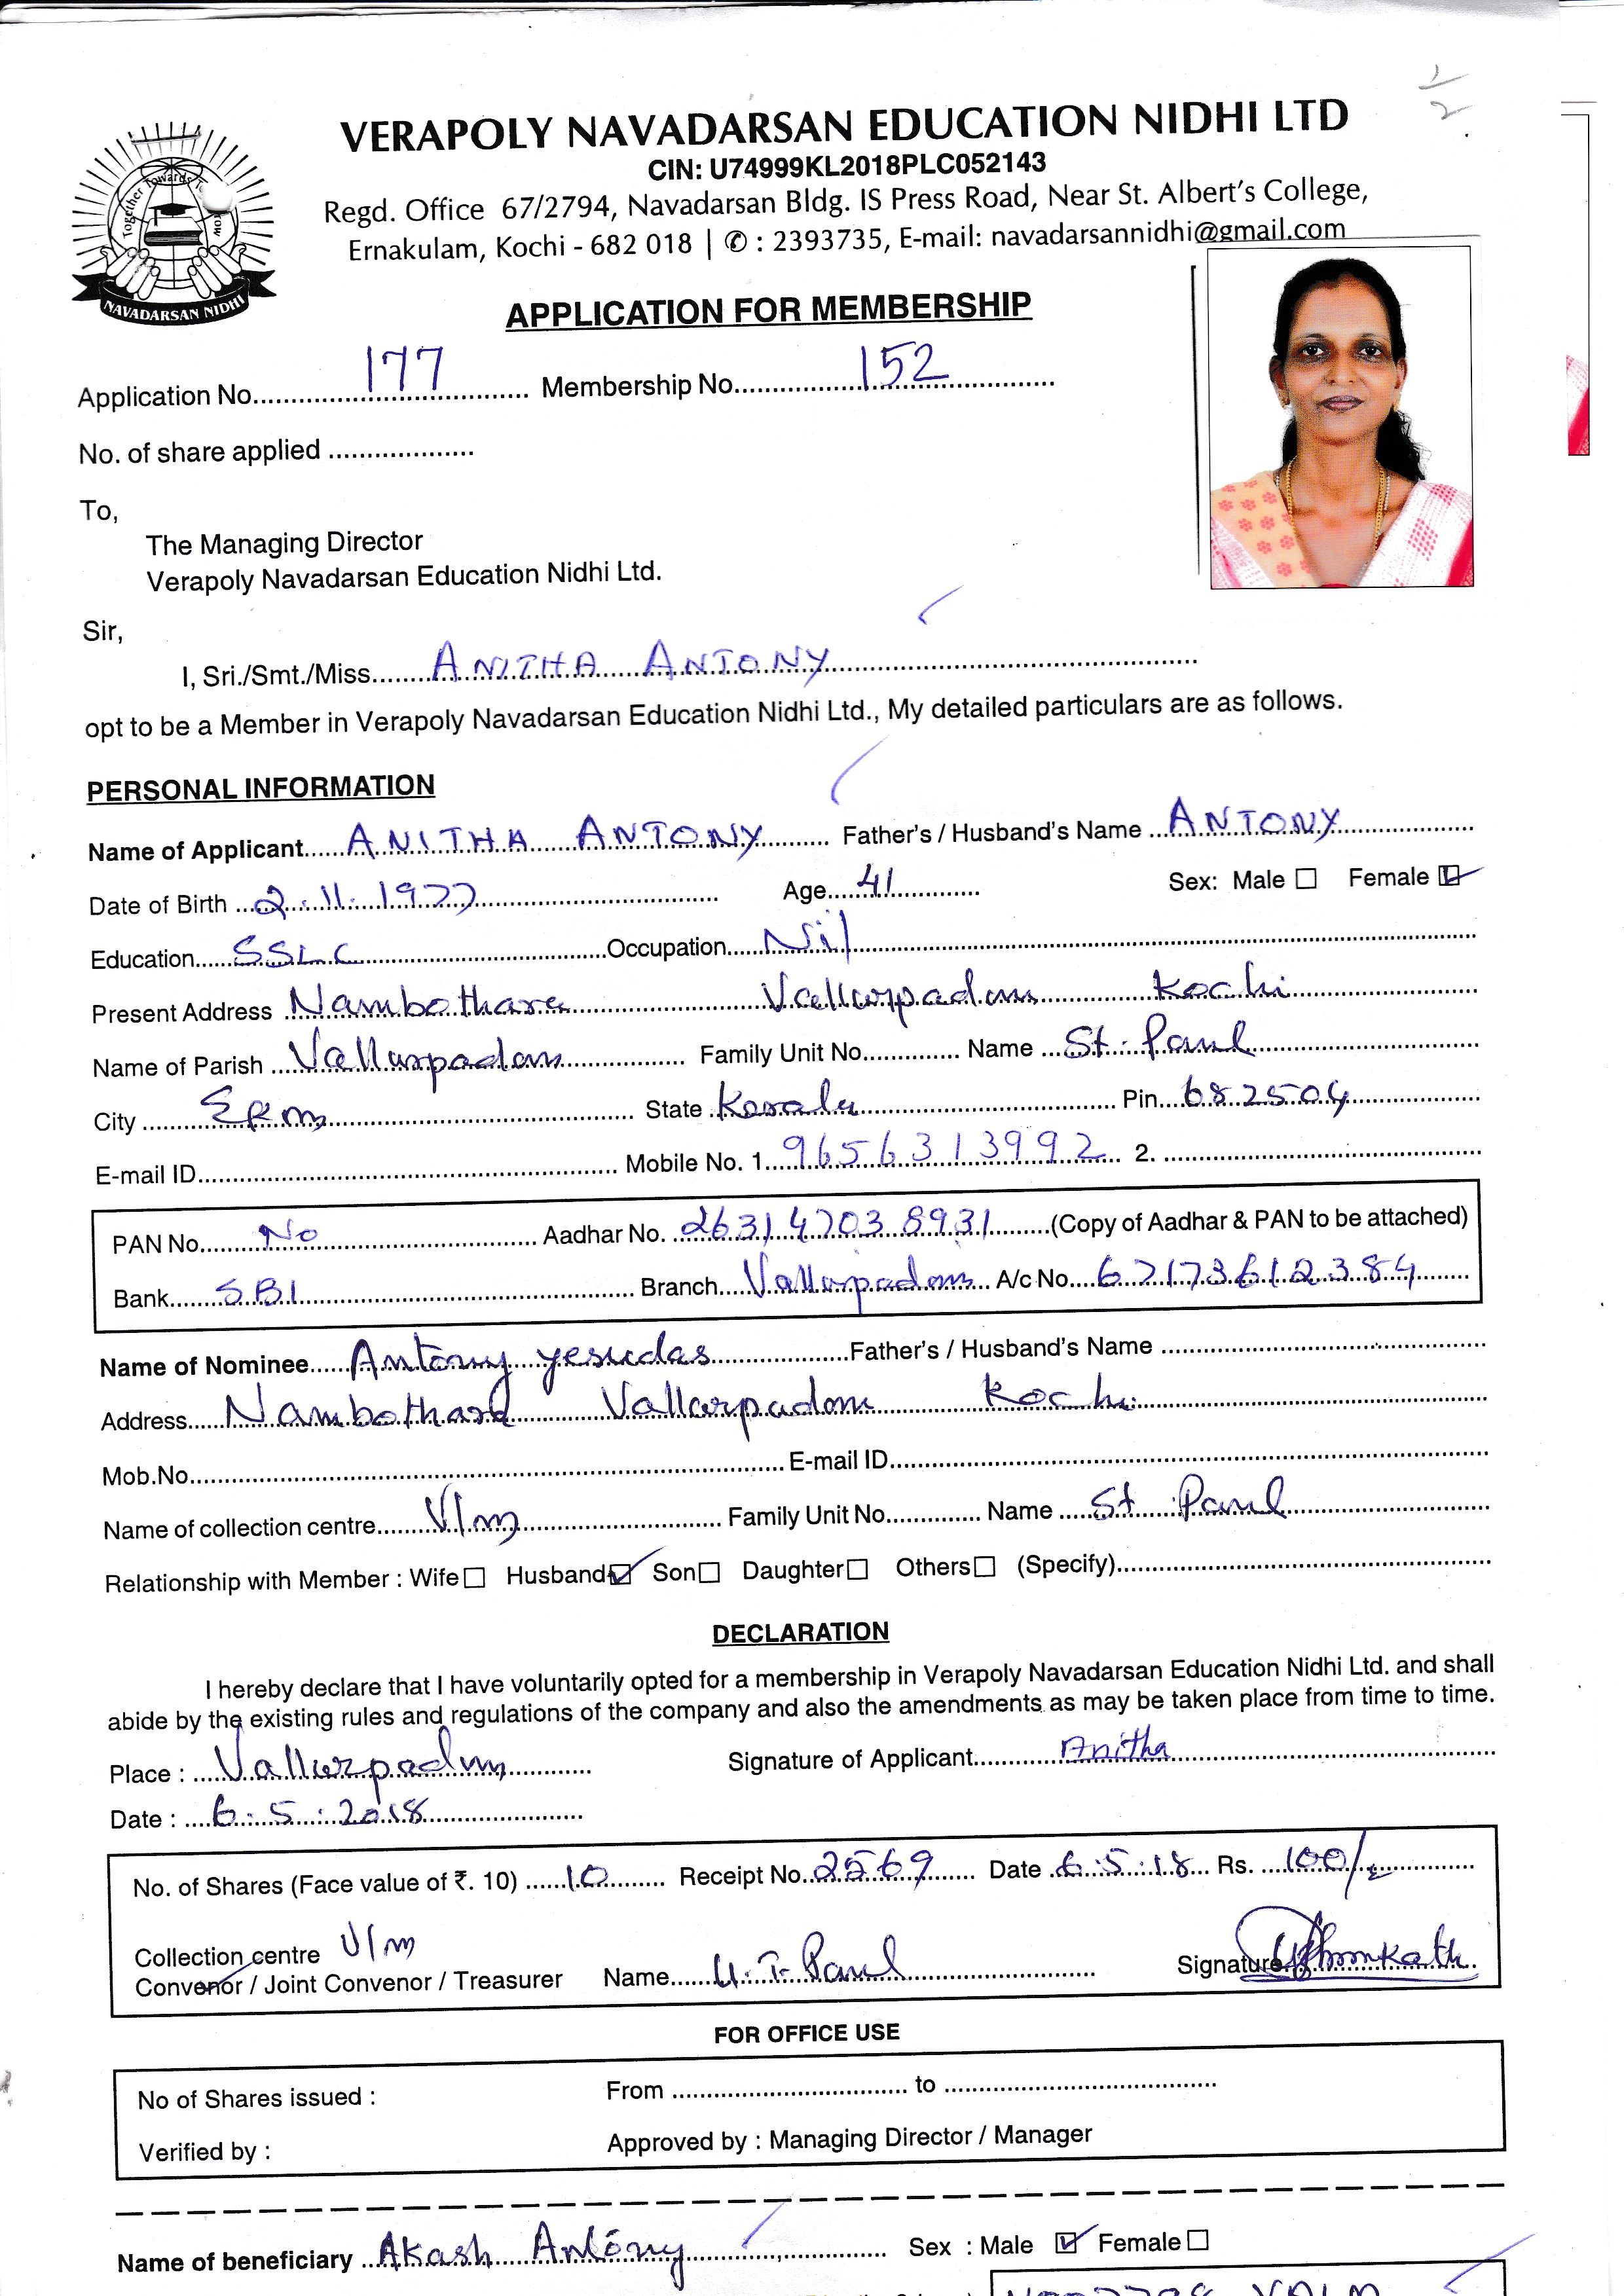 1/2
VERAPOLY NAVADARSAN EDUCATION NIDHI LTD
CIN: U74999KL2018PLC052143
Regd. Office 67/2794, Navadarsan Bldg. IS Press Road, Near St. Albert's College,
Ernakulam, Kochi - 682 018 | ✆ : 2393735, E-mail: navadarsannidhi@gmail.com
Together Towards
NAVADARSAN NIDHI
APPLICATION FOR MEMBERSHIP
Application No. 177 Membership No. 152
No. of share applied ...................
To,
The Managing Director
Verapoly Navadarsan Education Nidhi Ltd.
Sir,
I, Sri./Smt./Miss. ANITHA ANTONY
opt to be a Member in Verapoly Navadarsan Education Nidhi Ltd., My detailed particulars are as follows.
PERSONAL INFORMATION
Name of Applicant ANITHA ANTONY Father's / Husband's Name ANTONY
Date of Birth 2.11.1977 Age 41 Sex: Male ☐ Female ☑
Education SSLC Occupation Nil
Present Address Nambothara Vallarpadam Kochi
Name of Parish Vallarpadam Family Unit No. Name St. Paul
City EKM State Kerala Pin 682504
E-mail ID Mobile No. 1. 9656313992 2.
PAN No. No Aadhar No. 263147038931 (Copy of Aadhar & PAN to be attached)
Bank SBI Branch Vallarpadam A/c No. 67173612384
Name of Nominee Antony yesudas Father's / Husband's Name
Address Nambothara Vallarpadam Kochi
Mob.No. E-mail ID
Name of collection centre Vlm Family Unit No. Name St. Paul
Relationship with Member : Wife ☐ Husband ☑ Son ☐ Daughter ☐ Others ☐ (Specify)
DECLARATION
I hereby declare that I have voluntarily opted for a membership in Verapoly Navadarsan Education Nidhi Ltd. and shall
abide by the existing rules and regulations of the company and also the amendments as may be taken place from time to time.
Place : Vallarpadam Signature of Applicant Anitha
Date : 6.5.2018
No. of Shares (Face value of ₹. 10) 10 Receipt No. 2569 Date 6.5.18 Rs. 100/-
Collection centre Vlm
Convenor / Joint Convenor / Treasurer Name U.T. Paul Signature
FOR OFFICE USE
No of Shares issued : From to
Verified by : Approved by : Managing Director / Manager
Name of beneficiary Akash Antony Sex : Male ☑ Female ☐